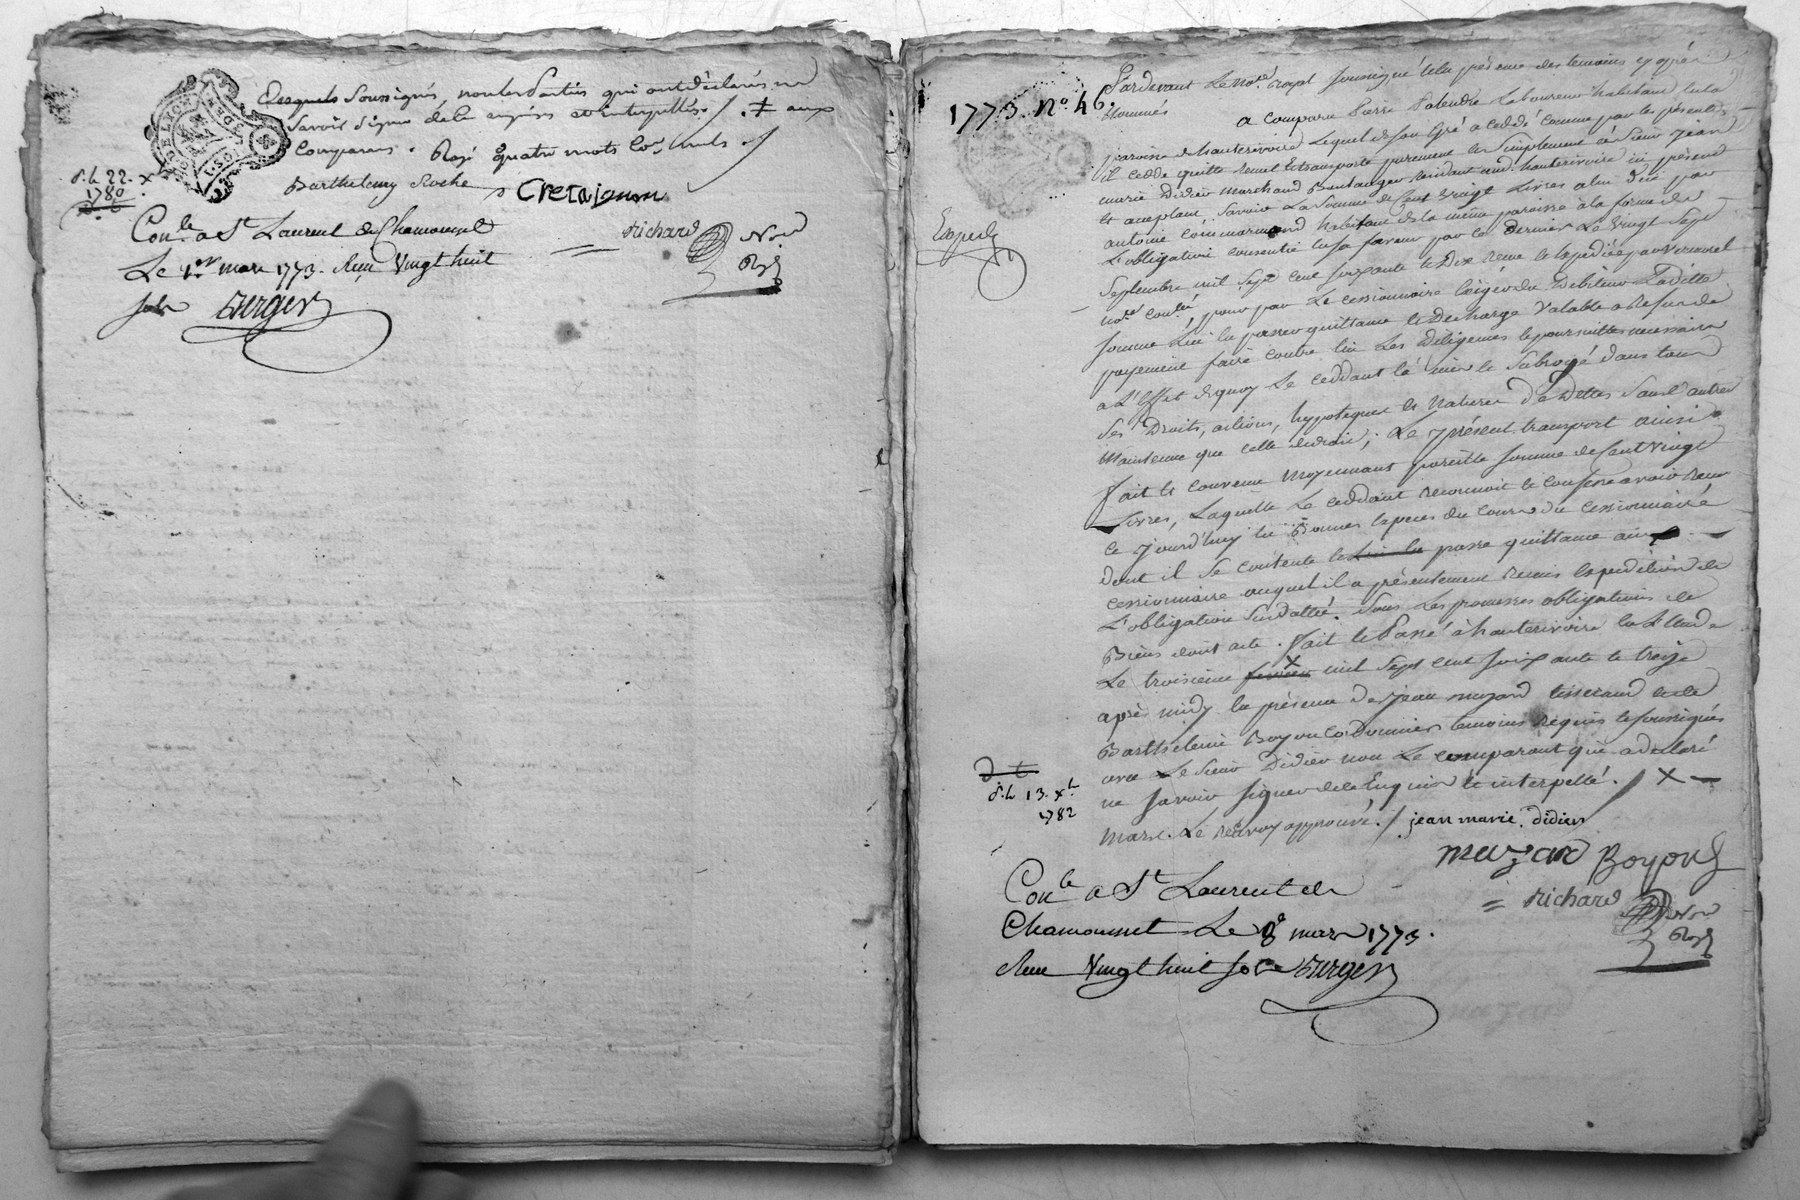 Lesquels Soussignés, non les parties qui ont déclarés ne
savoir signer de ce enquis et interpellés ./. ‡ aux
comparans. Rayé quatre mots cy nuls ./
Barthelemy Roche
Cretaignon
d. le 22. x
1780
richard
Nore
Royl
Conlé a St Laurent de Chamousset
Le 1er mars 1773. Reçu Vingt huit
sols
Berger
1773. no. 46.
Pardevant Le Nore. royal soussigné et en présence des temoins cy après
Nommés a comparu Pierre Laboureur habitant en la
paroisse de hauterivoire Lequel de son Gré a ceddé comme par les présentes
il cedde quitte remet et transporte purement et simplement à Sieur jean
marie Didier marchand Boulanger résidant aud. hauterivoire ici présent
et acceptant, Savoir La Somme de Cent vingt Livres a lui due par
antoine commarmond habitant de la même paroisse à la forme de
L'obligation consentie en sa faveur par ce dernier Le vingt sept
Septembre mil sept cent soixante et Dix reçue et expédiée par
nore. conlé, pour par Le cessionnaire exiger du Débiteur Laditte
somme Lui en passer quittance et Décharge Valable a Refus de
payement faire contre lui Les Diligences et poursuittes necessaires
a L'Effet de quoy Le ceddant l'a mis et Subrogé dans tous
Ses Droits, actions, hypoteques et Natures De Dettes Sans autre
Maintenue que celle de droit; Le présent transport ainsi
fait et convenu moyennant pareille somme de Cent Vingt
Livres, Laquelle Le ceddant reconnoit et confesse avoir reçu
ce jourd'huy en Bonnes especes du Cours du cessionnaire
dont il se contente et en passe quittance au
cessionnaire auquel il a présentement remis expedition de
L'obligation Susdattée. Sous Les promesses obligations de
Biens dont acte. fait et Passé à hauterivoire en L'Etude
Le troisieme fevrier x mil Sept cent soixante et treize
après midy en présence de jean mazard tisserand et de
Barthelemi Boyon Cordonnier temoins requis et soussignés
avec Le Sieur Didier non Le comparant qui a declaré
ne savoir signer de ce Enquis et interpellé. / x
mars. Le renvoy approuvé. /. jean marie. didier
Exped
d. le 13. x
1782
mazard Boyon
richard
Nore
Royl
Conlé a St Laurent de
Chamousset Le 8e mars 1773.
Reçu Vingt huit sols Berger